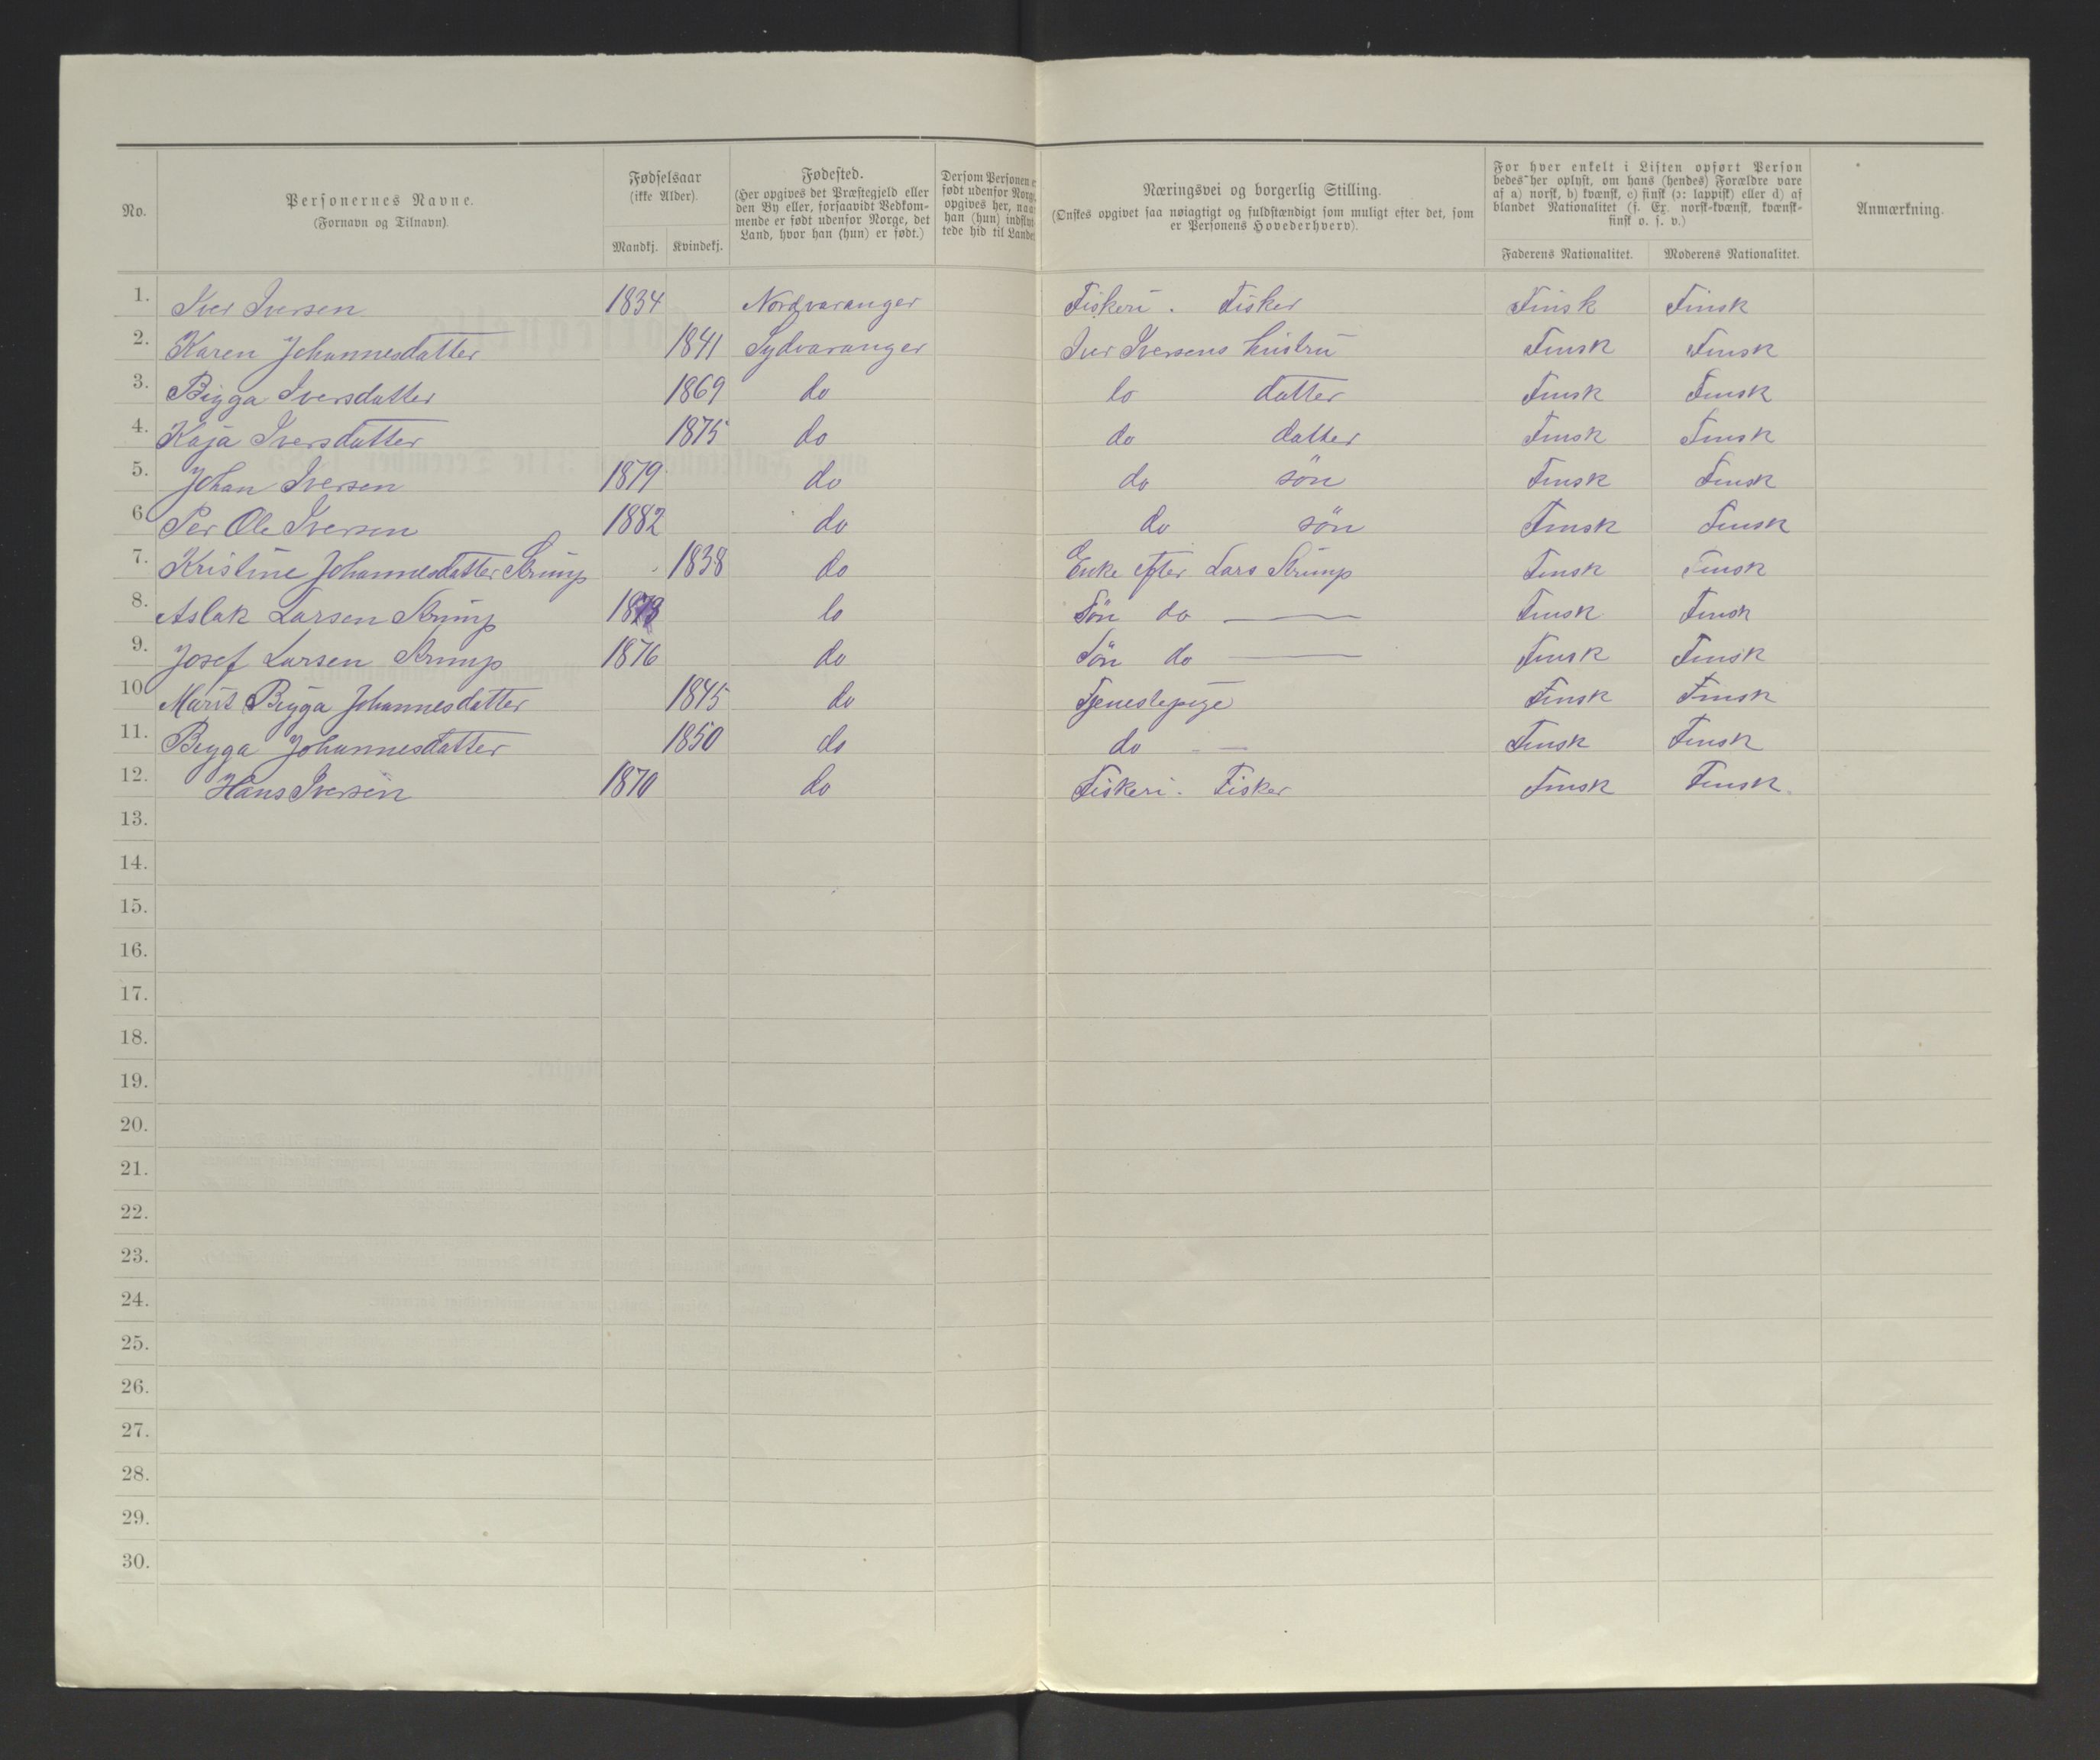 No.
Personernes Navne.
(Fornavn og Tilnavn).
Fødselsaar
(ikke Alder).
Mandkj. Kvindekj.
Fødested.
(Her opgives det Præstegjeld eller
den By eller, forsaavidt Vedkom-
mende er født udenfor Norge, det
Land, hvor han (hun) er født.)
Dersom Personen e
født udenfor Norge
opgives her, naa
han (hun) indflyt
tede hid til Landet
Næringsvei og borgerlig Stilling.
(Ønskes opgivet saa nøiagtigt og fuldstændigt som muligt efter det, som
er Personens Hovederhverv).
For hver enkelt i Listen opført Person
bedes her oplyst, om hans (hendes) Forældre vare
af a) norsk, b) kvænsk, c) finsk (ɔ: lappisk) eller d) af
blandet Nationalitet (f. Ex. norsk-kvænsk, kvænsk-
finsk o. s. v.)
Faderens Nationalitet. Moderens Nationalitet.
Anmærkning.
1. Iver Iversen 1834 Nordvaranger Fiskeri. Fisker Finsk Finsk
2. Karen Johannesdatter 1841 Sydvaranger Iver Iversens hustru Finsk Finsk
3. Bigga Iversdatter 1869 do do datter Finsk Finsk
4. Kaja Iversdatter 1875 do do datter Finsk Finsk
5. Johan Iversen 1879 do do søn Finsk Finsk
6. Per Ole Iversen 1882 do do søn Finsk Finsk
7. Kristine Johannesdatter Strimp 1838 do Enke efter Lars Strimp Finsk Finsk
8. Aslak Larsen Strimp 1873 do Søn do — Finsk Finsk
9. Josef Larsen Strimp 1876 do Søn do — Finsk Finsk
10. Marit Bigga Johannesdatter 1845 do Tjenestepige Finsk Finsk
11. Bigga Johannesdatter 1850 do do — Finsk Finsk
12. Hans Iversen 1870 do Fiskeri. Fisker Finsk Finsk.
13.
14.
15.
16.
17.
18.
19.
20.
21.
22.
23.
24.
25.
26.
27.
28.
29.
30.